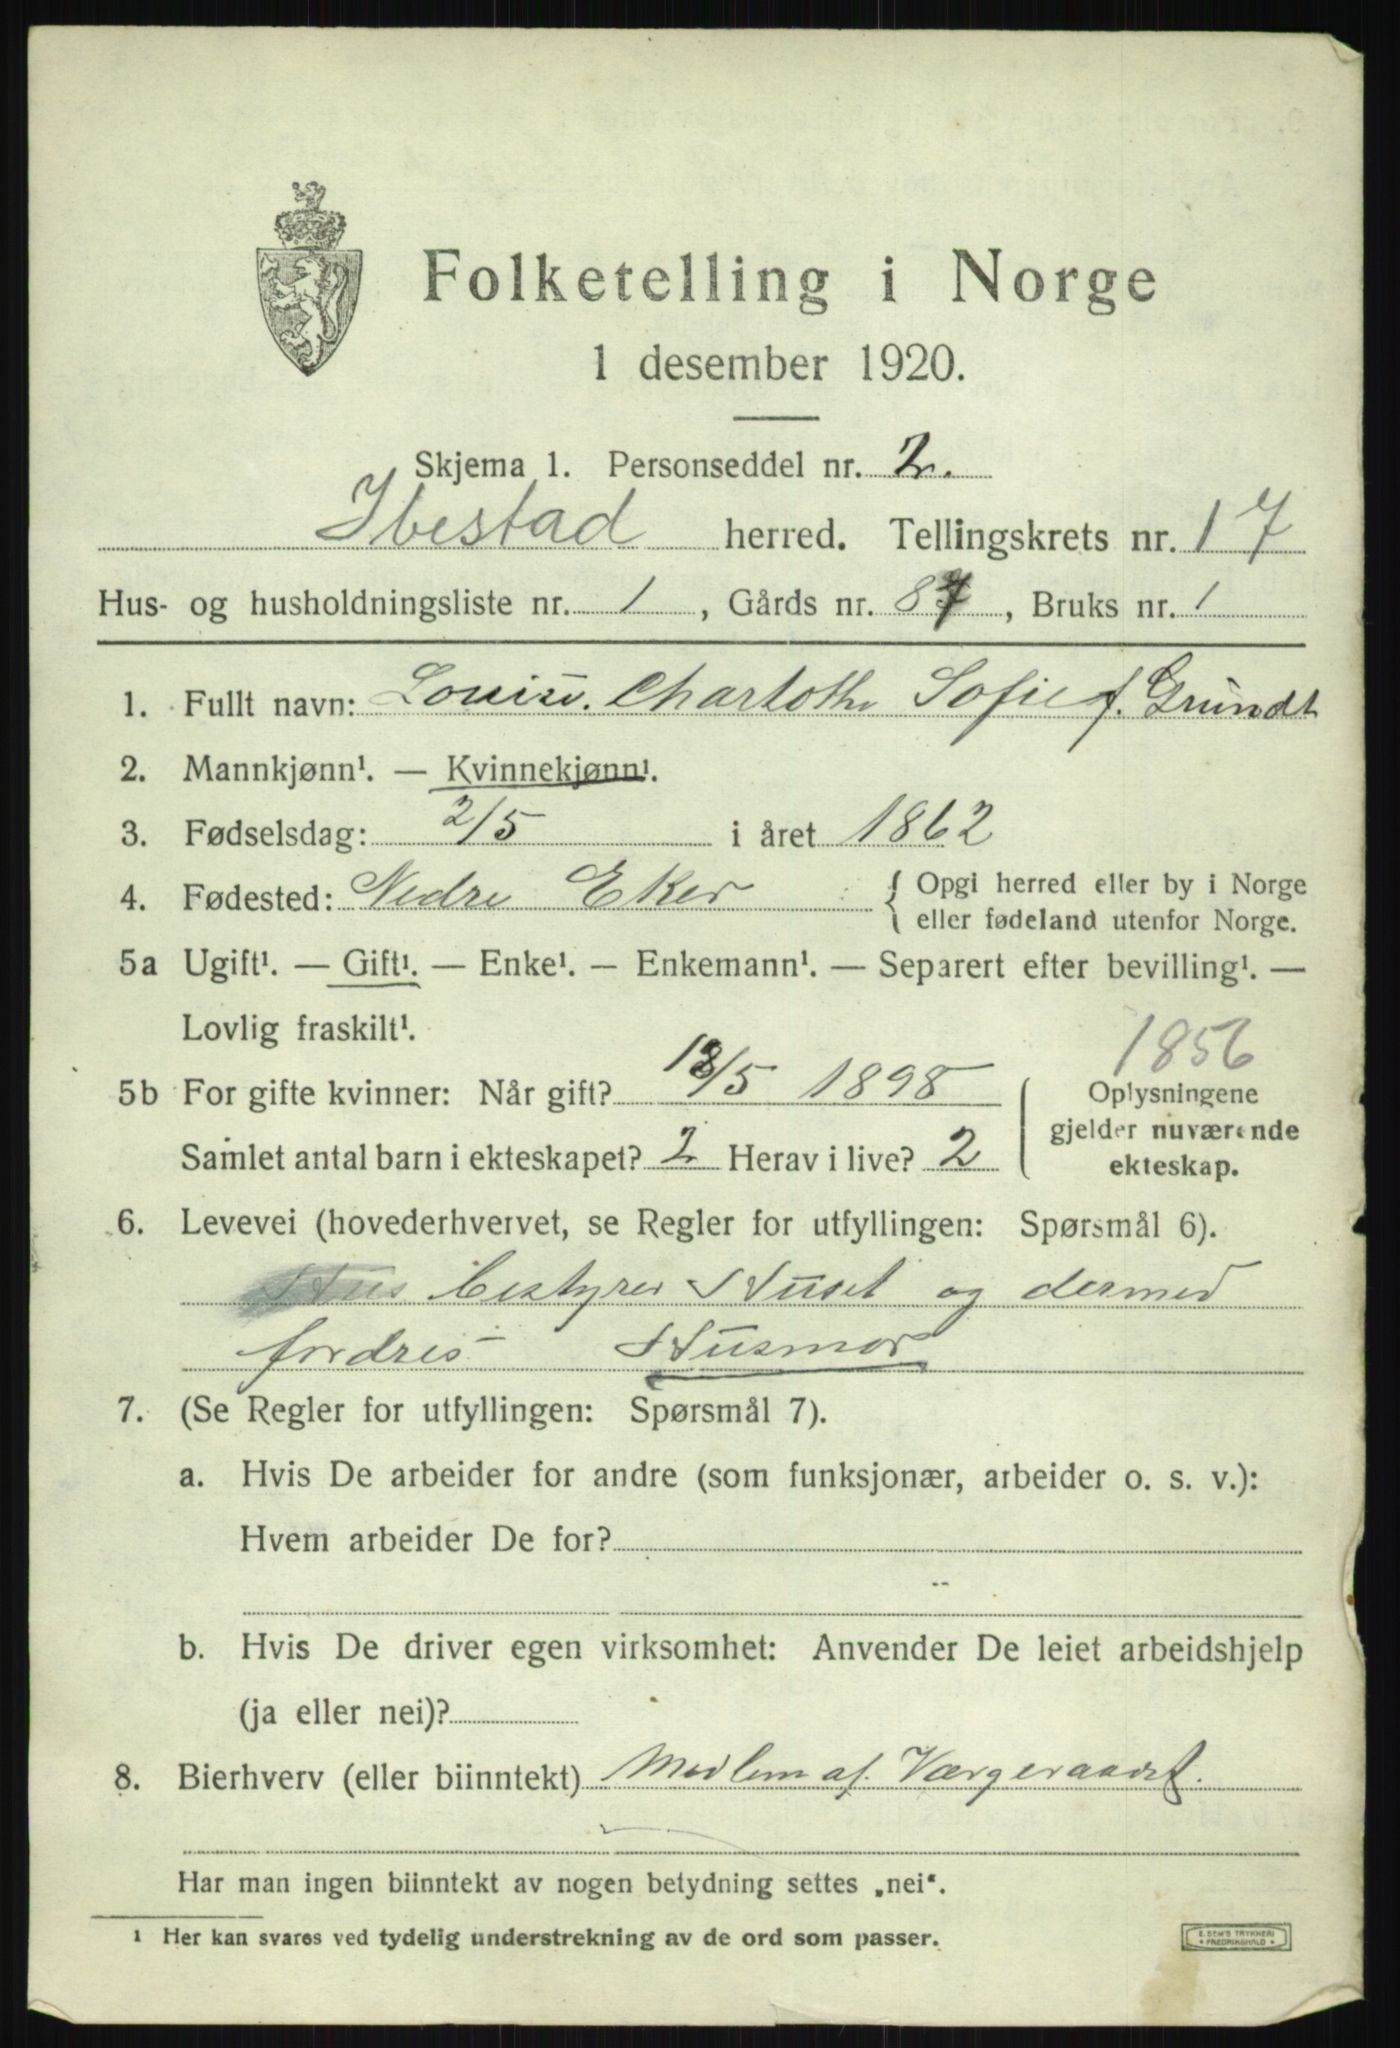 Folketelling i Norge
1 desember 1920.
Skjema 1. Personseddel nr. 2.
Ibestad herred. Tellingskrets nr. 17
Hus- og husholdningsliste nr. 1, Gårds nr. 87, Bruks nr. 1
1. Fullt navn: Louise. Charlothe Sofie f. Grundt
2. Mannkjønn¹. — Kvinnekjønn¹.
3. Fødselsdag: 2/5 i året 1862
4. Fødested: Nedre Eker { Opgi herred eller by i Norge
eller fødeland utenfor Norge.
5a Ugift¹. — Gift¹. — Enke¹. — Enkemann¹. — Separert efter bevilling¹. —
Lovlig fraskilt¹.
1856
5b For gifte kvinner: Når gift? /5 1898 { Oplysningene
gjelder nuværende
Samlet antal barn i ekteskapet? 2 Herav i live? 2 ekteskap.
6. Levevei (hovederhvervet, se Regler for utfyllingen: Spørsmål 6).
Hus bestyrer Huset og dermed
fordres Husmor
7. (Se Regler for utfyllingen: Spørsmål 7).
a. Hvis De arbeider for andre (som funksjonær, arbeider o. s. v.):
Hvem arbeider De for?
b. Hvis De driver egen virksomhet: Anvender De leiet arbeidshjelp
(ja eller nei)?
8. Bierhverv (eller biinntekt) Medlem af. Værgeraadet.
Har man ingen biinntekt av nogen betydning settes „nei“.
¹ Her kan svares ved tydelig understrekning av de ord som passer.
E. SEM'S TRYKKERI
* FREDRIKSHALD *